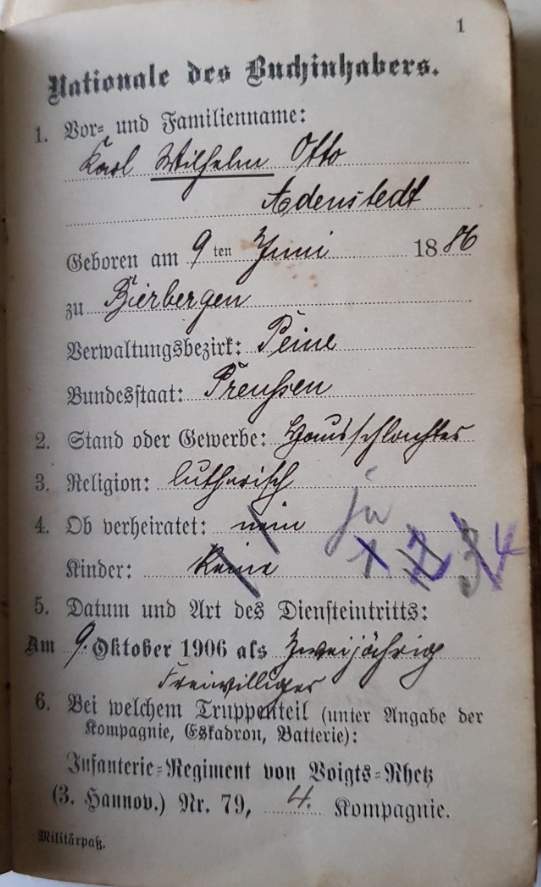 1
Nationale des Buchinhabers.
1. Vor= und Familienname:
Karl Wilhelm Otto
Adenstedt
Geboren am 9ten Juni 1886
zu Bierbergen
Verwaltungsbezirk: Peine
Bundesstaat: Preußen
2. Stand oder Gewerbe: Hausschlachter
3. Religion: lutherisch
4. Ob verheiratet: nein ja
Kinder: Keine 1 2 3 4
5. Datum und Art des Diensteintritts:
Am 9. Oktober 1906 als Zweijährig
Freiwilliger
6. Bei welchem Truppenteil (unter Angabe der
Kompagnie, Eskadron, Batterie):
Infanterie=Regiment von Voigts=Rhetz
(3. Hannov.) Nr. 79, 4. Kompagnie.
Militärpaß.